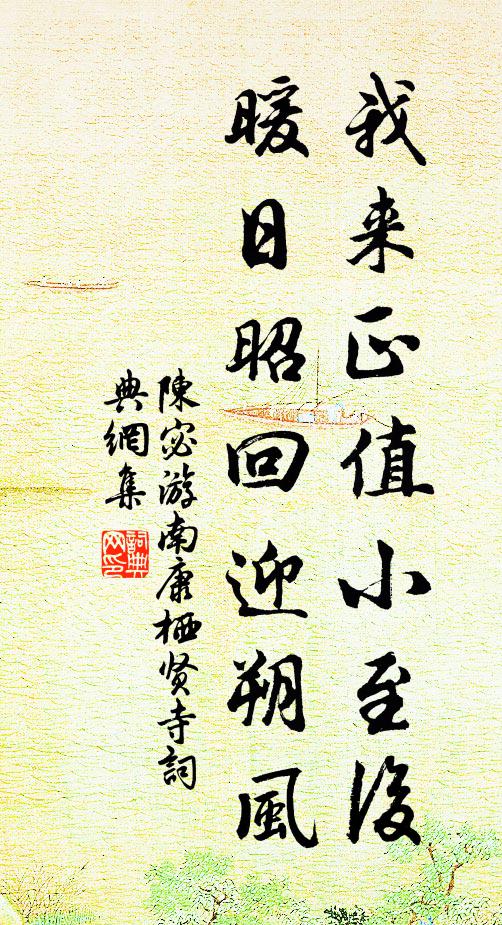 我来正值小至後
暖日昭回迎朔風
陳宓游南康栖贤寺詞
典網集
詞典
网印